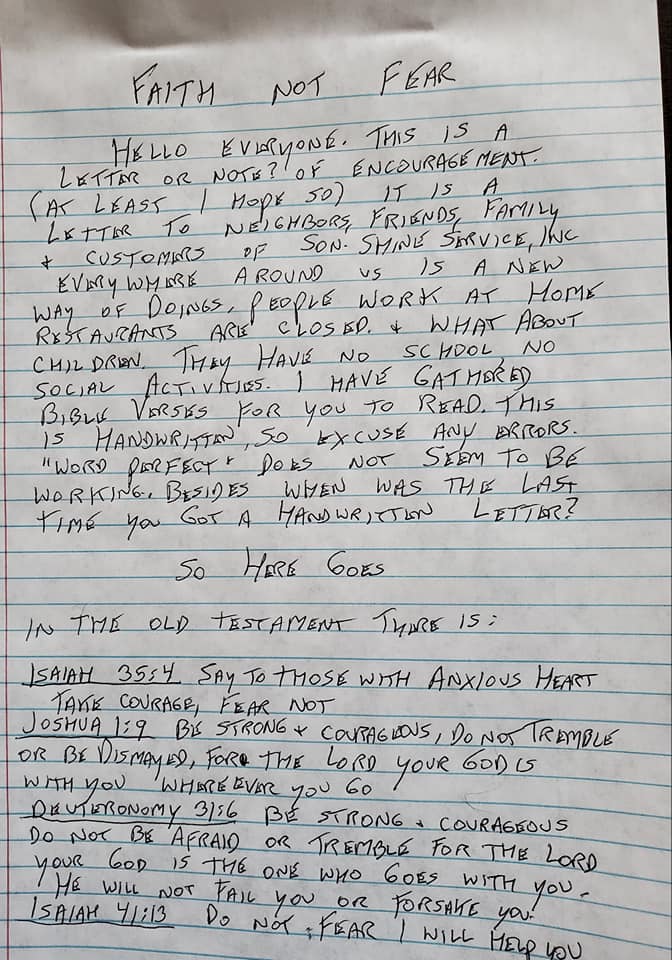 FAITH NOT FEAR
HELLO EVERYONE. THIS IS A
LETTER OR NOTE? OF ENCOURAGEMENT.
(AT LEAST I HOPE SO) IT IS A
LETTER TO NEIGHBORS, FRIENDS, FAMILY
& CUSTOMERS OF SON-SHINE SERVICE, INC
EVERYWHERE AROUND US IS A NEW
WAY OF DOINGS, PEOPLE WORK AT HOME
RESTAURANTS ARE CLOSED. & WHAT ABOUT
CHILDREN. THEY HAVE NO SCHOOL, NO
SOCIAL ACTIVITIES. I HAVE GATHERED
BIBLE VERSES FOR YOU TO READ. THIS
IS HANDWRITTEN, SO EXCUSE ANY ERRORS.
"WORD PERFECT" DOES NOT SEEM TO BE
WORKING. BESIDES WHEN WAS THE LAST
TIME YOU GOT A HANDWRITTEN LETTER?
SO HERE GOES
IN THE OLD TESTAMENT THERE IS:
ISAIAH 35:4 SAY TO THOSE WITH ANXIOUS HEART
TAKE COURAGE, FEAR NOT
JOSHUA 1:9 BE STRONG & COURAGEOUS, DO NOT TREMBLE
OR BE DISMAYED, FOR THE LORD YOUR GOD IS
WITH YOU WHEREEVER YOU GO
DEUTERONOMY 31:6 BE STRONG & COURAGEOUS
DO NOT BE AFRAID OR TREMBLE FOR THE LORD
YOUR GOD IS THE ONE WHO GOES WITH YOU.
HE WILL NOT FAIL YOU OR FORSAKE YOU.
ISAIAH 41:13 DO NOT FEAR I WILL HELP YOU